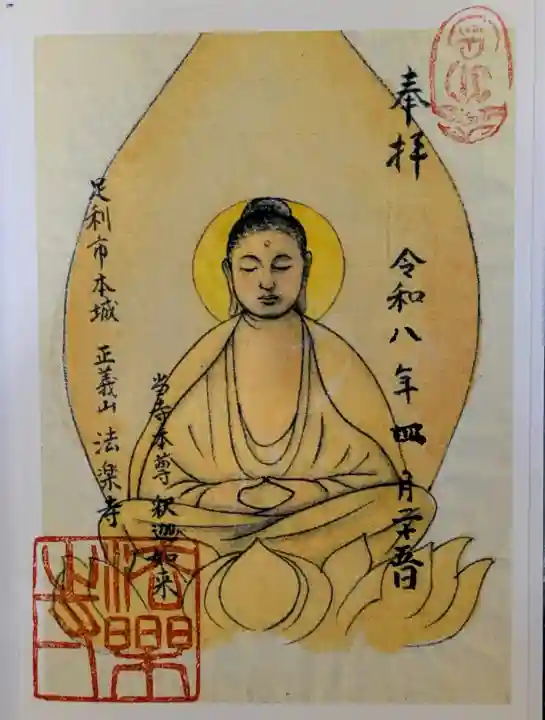 奉拝
令和八年四月
当寺本尊 釈迦如来
足利市本城 正義山 法楽寺